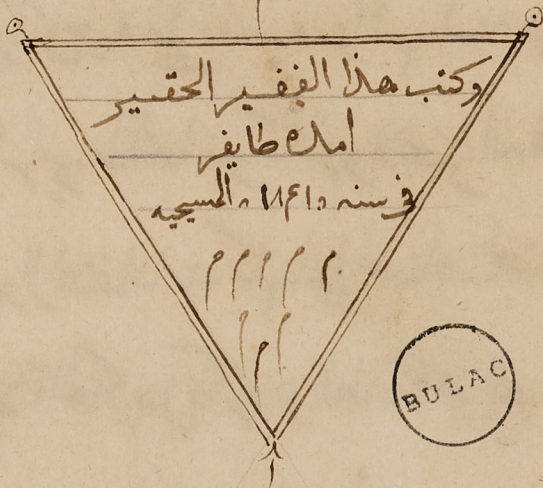 وكتب هذا الفقير الحقير
طايفر
في سنه المسيحيه
م م م م م
م م م
BULAC